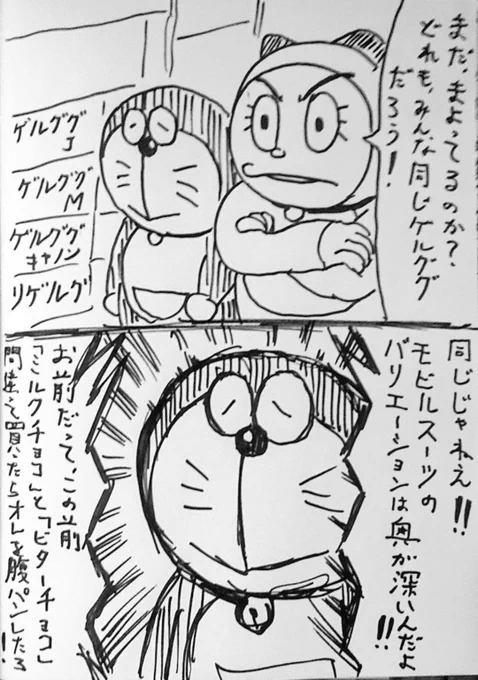 まだ、まよってるのか？
どれも、みんな同じゲルググ
だろう！
ゲルググ
J
ゲルググ
M
ゲルググ
キャノン
リゲルグ
同じじゃねえ!!
モビルスーツの
バリエーションは奥が深いんだよ!!
お前だって、この前
「ミルクチョコ」と「ビターチョコ」
間違って買いたらオレを腹パンしたろ！